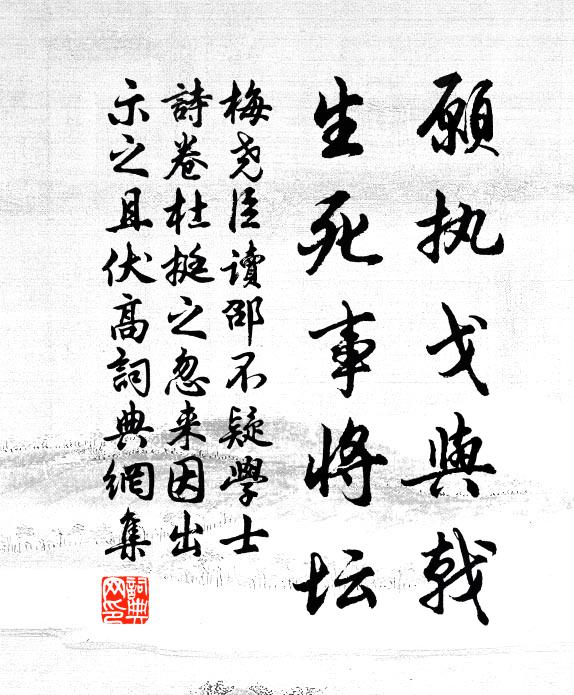 願执戈與戟
生死事将坛
梅尧臣讀邵不疑學士
詩卷杜挺之忽来因出
示之且伏高詞典網集